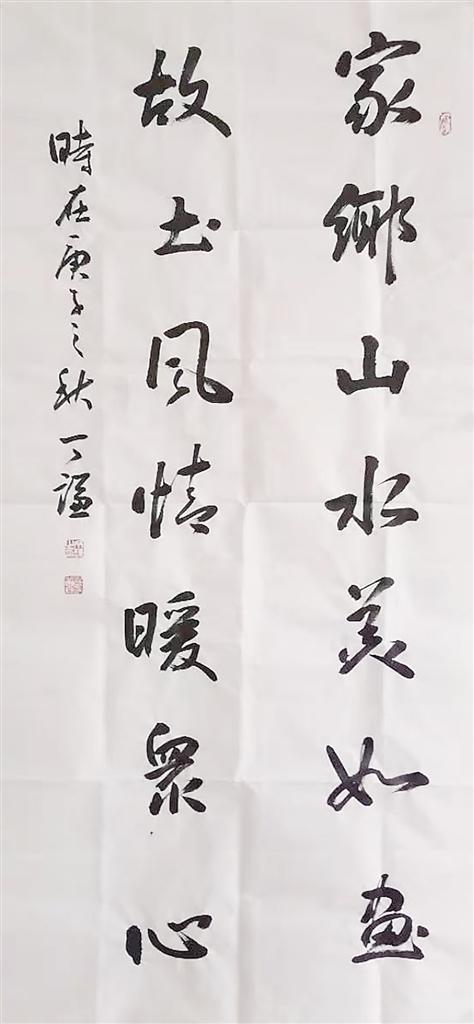 家鄉山水美如畫
故土風情暖衆心
時在庚子之秋丁謙